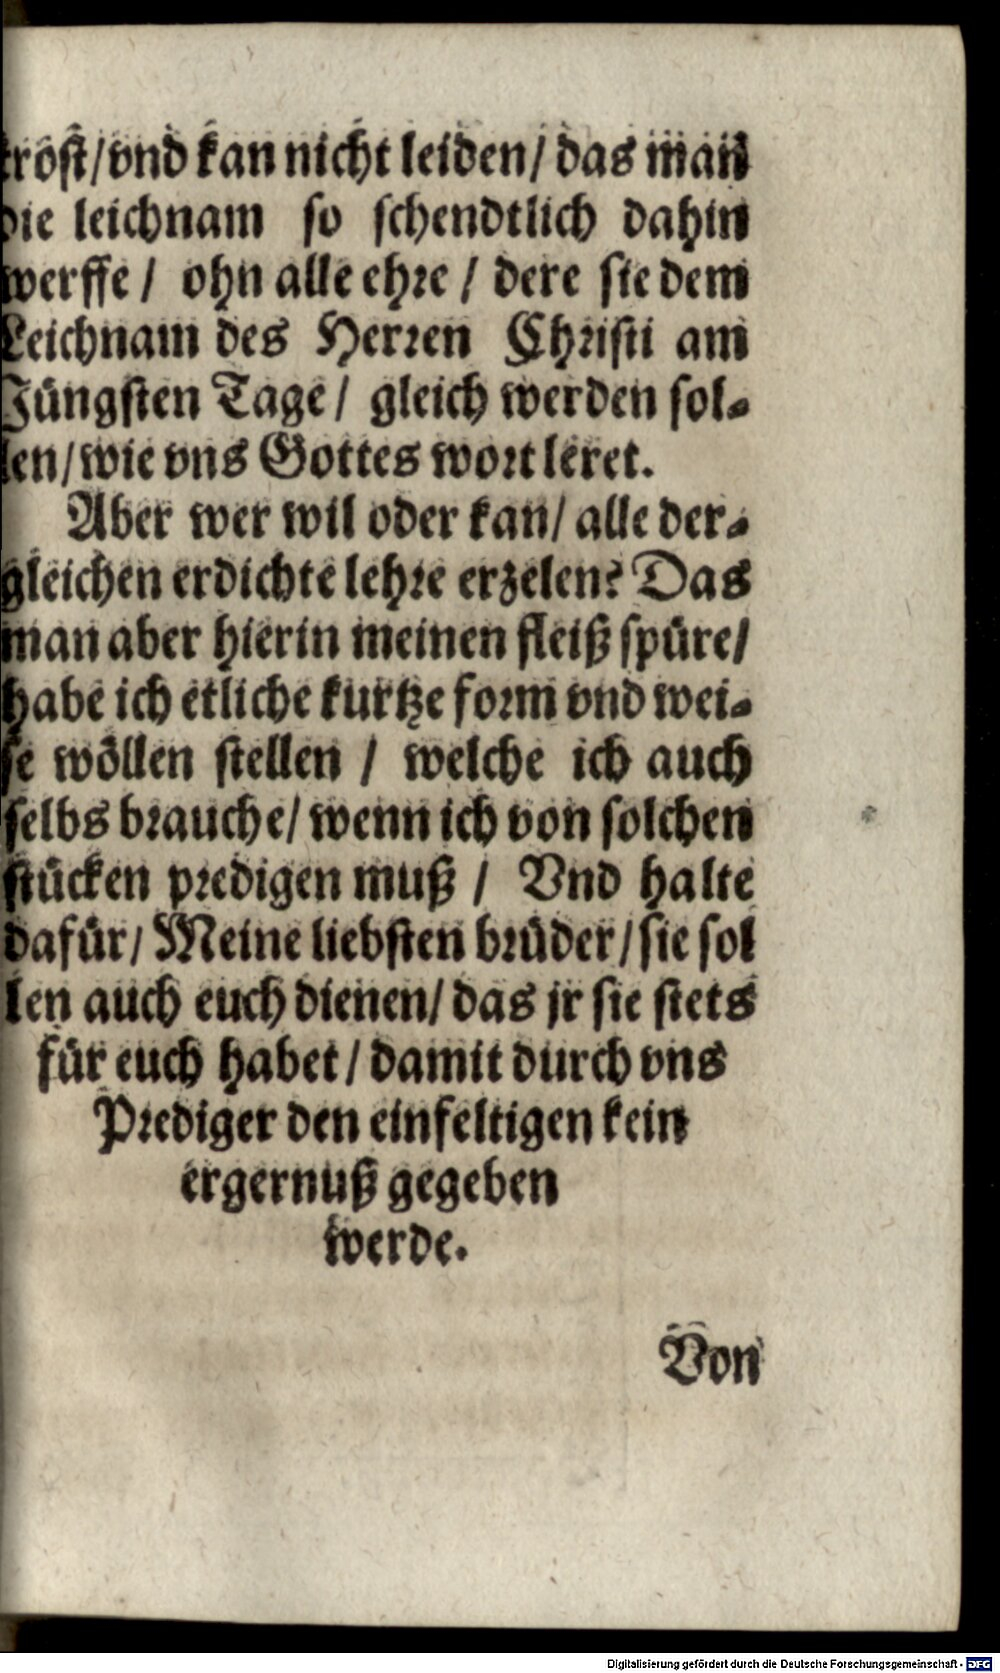 tröst/vnd kan nicht leiden/ das man
die leichnam so schendtlich dahin
werffe/ ohn alle ehre/ dere sie dem
Leichnam des Herren Christi am
Jüngsten Tage/ gleich werden sol-
len/wie vns Gottes wort leret.
Aber wer wil oder kan/ alle der-
gleichen erdichte lehre erzelen? Das
man aber hierin meinen fleiß spüre/
habe ich etliche kurtze form vnd wei-
se wöllen stellen/ welche ich auch
selbs brauche/ wenn ich von solchen
stücken predigen muß/ Vnd halte
dafür/ Meine liebsten brüder/sie sol
len auch euch dienen/ das jr sie stets
für euch habet/ damit durch vns
Prediger den einfeltigen kein
ergernuß gegeben
werde.
Von
Digitalisierung gefördert durch die Deutsche Forschungsgemeinschaft - DFG